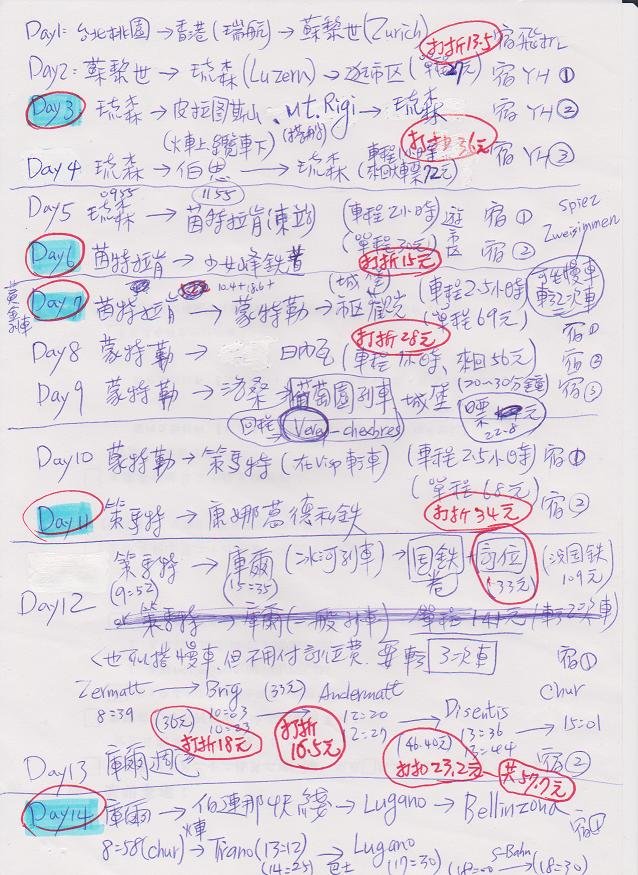 Day1: 台北桃園→香港(瑞航)→蘇黎世(Zurich) 宿飛机上
打折13.5
Day2: 蘇黎世→琉森(Luzern)→逛市区(單程27元) 宿YH ①
Day3 琉森→皮拉图斯山、Mt. Rigi→琉森 宿YH ②
(火車上纜車下) (搭船)
打折36元
Day4 琉森→伯恩→琉森 (來回火車票72元) 宿YH ③
0955 1155
Day5 琉森→茵特拉肯(東站) (車程2小時) 遊市区 宿①
(單程30元)
打折15元
Spiez
Zweisimmen
Day6 茵特拉肯→少女峰鉄 宿②
黃金列車
10.4+18.6+
Day7 茵特拉肯→蒙特勒→市区觀光 (車程2.5小時) 宿①
(城堡)
(單程69元)
可坐慢車
車32次車
打折28元
Day8 蒙特勒 日內瓦 (車程1小時、來回56元) 宿②
Day9 蒙特勒→洛桑→葡萄園列車 城堡 (20~30分鐘) 宿③
回程 Vevey-chexbres
票 元
22.8
Day10 蒙特勒→策馬特(在Visp転車) (車程2.5小時) 宿①
(單程68元)
打折34元
Day11 策馬特→康娜葛德利鉄 宿②
Day12 策馬特→庫爾(冰河列車)→国鉄卷+訂位 (沒国鉄109元)
(9:52) (15:35) (33元)
策馬特→庫爾(一般列車) 單程141元(車子3次車)
<也可以搭慢車,但不用付訂位費.要転3次車 宿①
Zermatt→Brig (33元) Andermatt→Disentis→Chur
8:39 10:03 12:20 13:36 15:01
10:23 12:27 13:44
(36元)
打折18元
打折16.5元
(46.40元)
打折23.2元
共57.7元
Day13 庫爾週邊 宿②
Day14 庫爾→伯連那快綫→Lugano→Bellinzona 宿1
火車
8:58(chur)→Tirano(13:12) →Lugano S-Bahn
(14:25) 巴士 (17:30) (18:00)→(18:30)